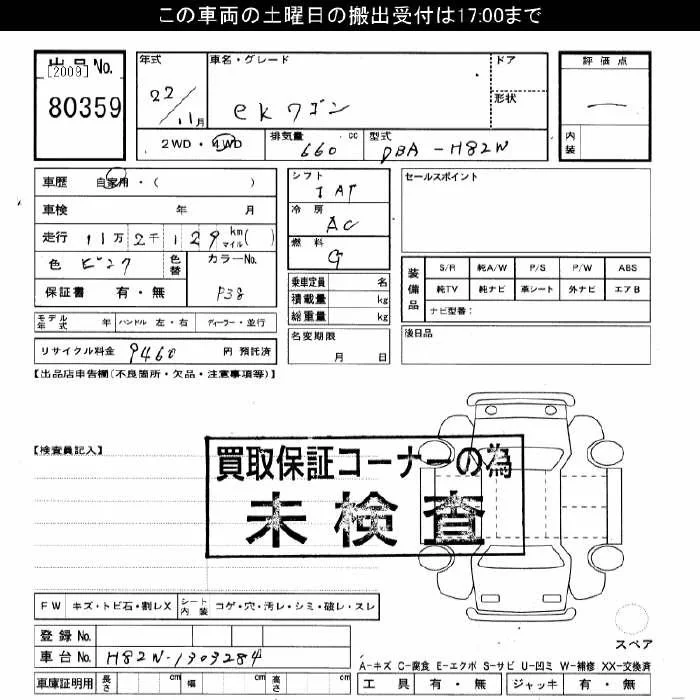 この車両の土曜日の搬出受付は17:00まで
出品No.
[2009]
80359
年式
22/11月
車名・グレード
ekワゴン
ドア
形状
評価点
内装
2WD・4WD
排気量
660 cc
型式
DBA-H82W
車歴 自家用・( )
車検 年 月
走行 11万2千129 km マイル( )
色 ピンク
色替
カラーNo.
P38
保証書 有・無
シフト
IAT
冷房
AC
燃料
G
乗車定員 名
積載量 kg
総重量 kg
セールスポイント
装備品
S/R 純A/W P/S P/W ABS
純TV 純ナビ 革シート 外ナビ エアB
ナビ型番:
モデル年式 年 ハンドル 左・右 ディーラー・並行
名変期限
月 日
後日品
リサイクル料金 9460 円 預託済
【出品店申告欄(不良箇所・欠品・注意事項等)】
【検査員記入】
買取保証コーナーの為
未検査
FW キズ・トビ石・割レX
シート内装 コゲ・穴・汚レ・シミ・破レ・スレ
スペア
登録No.
車台No. H82W-1303284
A-キズ C-腐食 E-エクボ S-サビ U-凹ミ W-補修 XX-交換済
車庫証明用 長さ cm 幅 cm 高さ cm
工具 有・無 ジャッキ 有・無